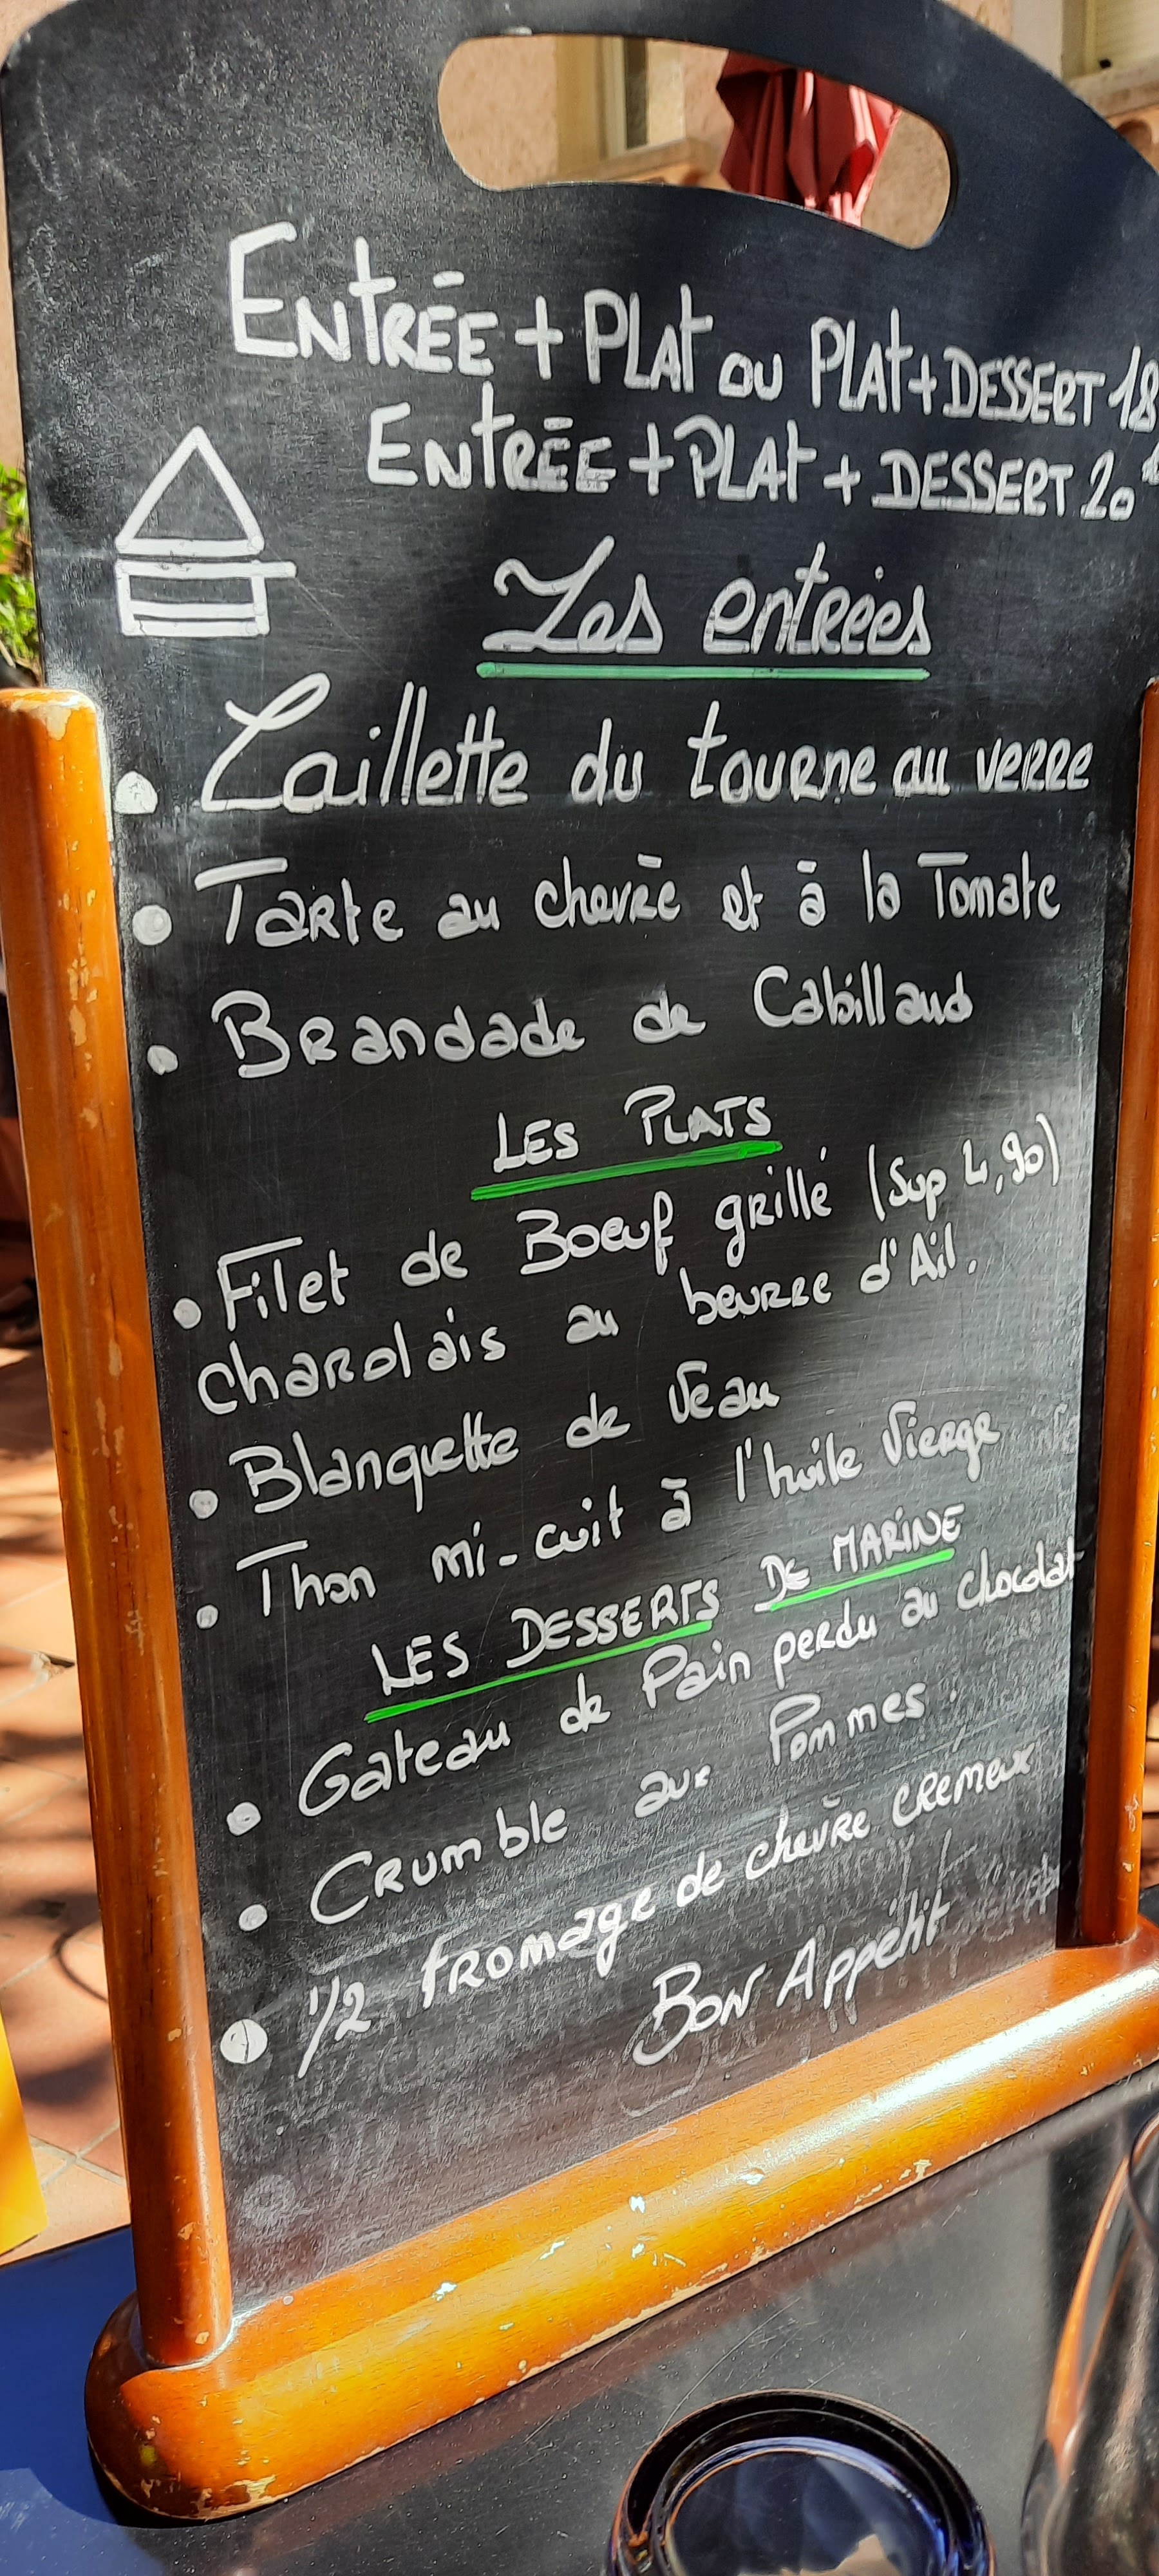 ENTRÉE + PLAT OU PLAT + DESSERT 18
ENTRÉE + PLAT + DESSERT 20
Les entrées
• Caillette du tourne au verre
• Tarte au chevrè et à la Tomate
• Brandade de Cabillaud
LES PLATS
• Filet de Boeuf grillé (Sup 4,90)
charolais au beurre d'Ail.
• Blanquette de Veau
• Thon mi-cuit à l'huile Vierge
LES DESSERTS DE MARINE
• Gateau de Pain perdu au chocolat
• Crumble aux Pommes.
• 1/2 fromage de chèvre cremeux
Bon Appétit